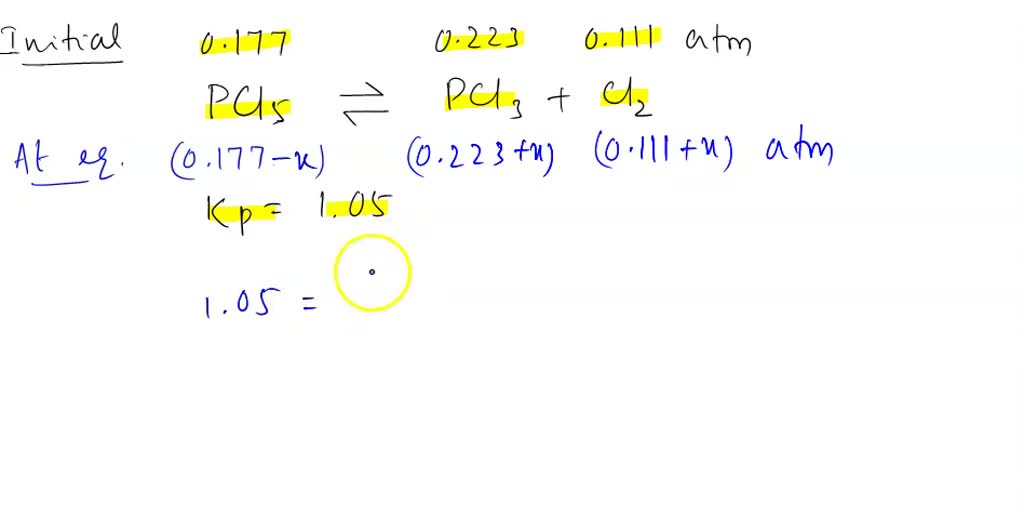 Initial 0.177 0.223 0.111 atm
PCl5 ⇌ PCl3 + Cl2
At eq. (0.177-x) (0.223+x) (0.111+x) atm
Kp = 1.05
1.05 =